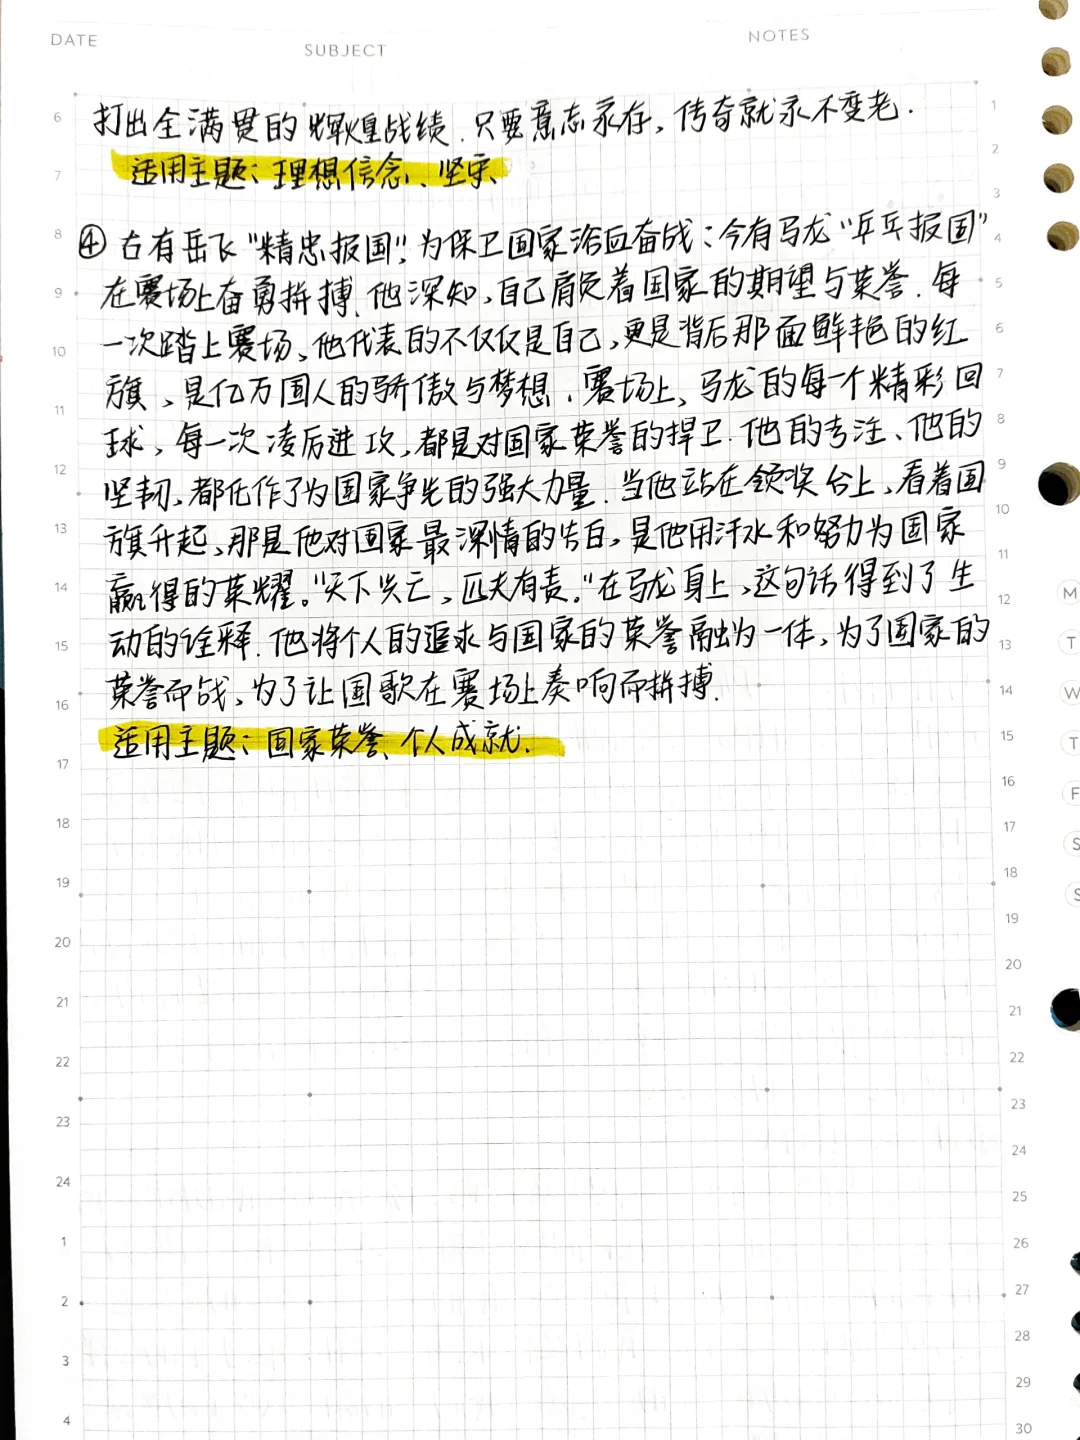 DATE
SUBJECT
NOTES
打出全满贯的辉煌战绩.只要意志永存,传奇就永不变老.
适用主题:理想信念、坚守、
④古有岳飞"精忠报国",为保卫国家浴血奋战;今有马龙"乒乓报国"
在赛场上奋勇拼搏.他深知,自己肩负着国家的期望与荣誉.每
一次踏上赛场,他代表的不仅仅是自己,更是背后那面鲜艳的红
旗,是亿万国人的骄傲与梦想.赛场上,马龙的每一个精彩回
球,每一次凌厉进攻,都是对国家荣誉的捍卫.他的专注、他的
坚韧,都化作了为国家争光的强大力量.当他站在领奖台上,看着国
旗升起,那是他对国家最深情的告白,是他用汗水和努力为国家
赢得的荣耀。"天下兴亡,匹夫有责."在马龙身上,这句话得到了生
动的诠释.他将个人的追求与国家的荣誉融为一体,为了国家的
荣誉而战,为了让国歌在赛场上奏响而拼搏.
适用主题:国家荣誉、个人成就.
6
7
8
9
10
11
12
13
14
15
16
17
18
19
20
21
22
23
24
1
2
3
4
1
2
3
4
5
6
7
8
9
10
11
12
13
14
15
16
17
18
19
20
21
22
23
24
25
26
27
28
29
30
M
T
W
T
F
S
S